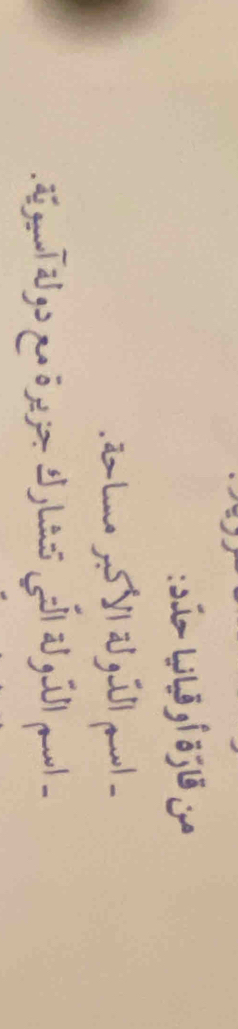 من قارّة أوقيانيا حدّد:
- اسم الدّولة الأكبر مساحة.
- اسم الدّولة الّتي تتشارك جزيرة مع دولة آسيويّة.